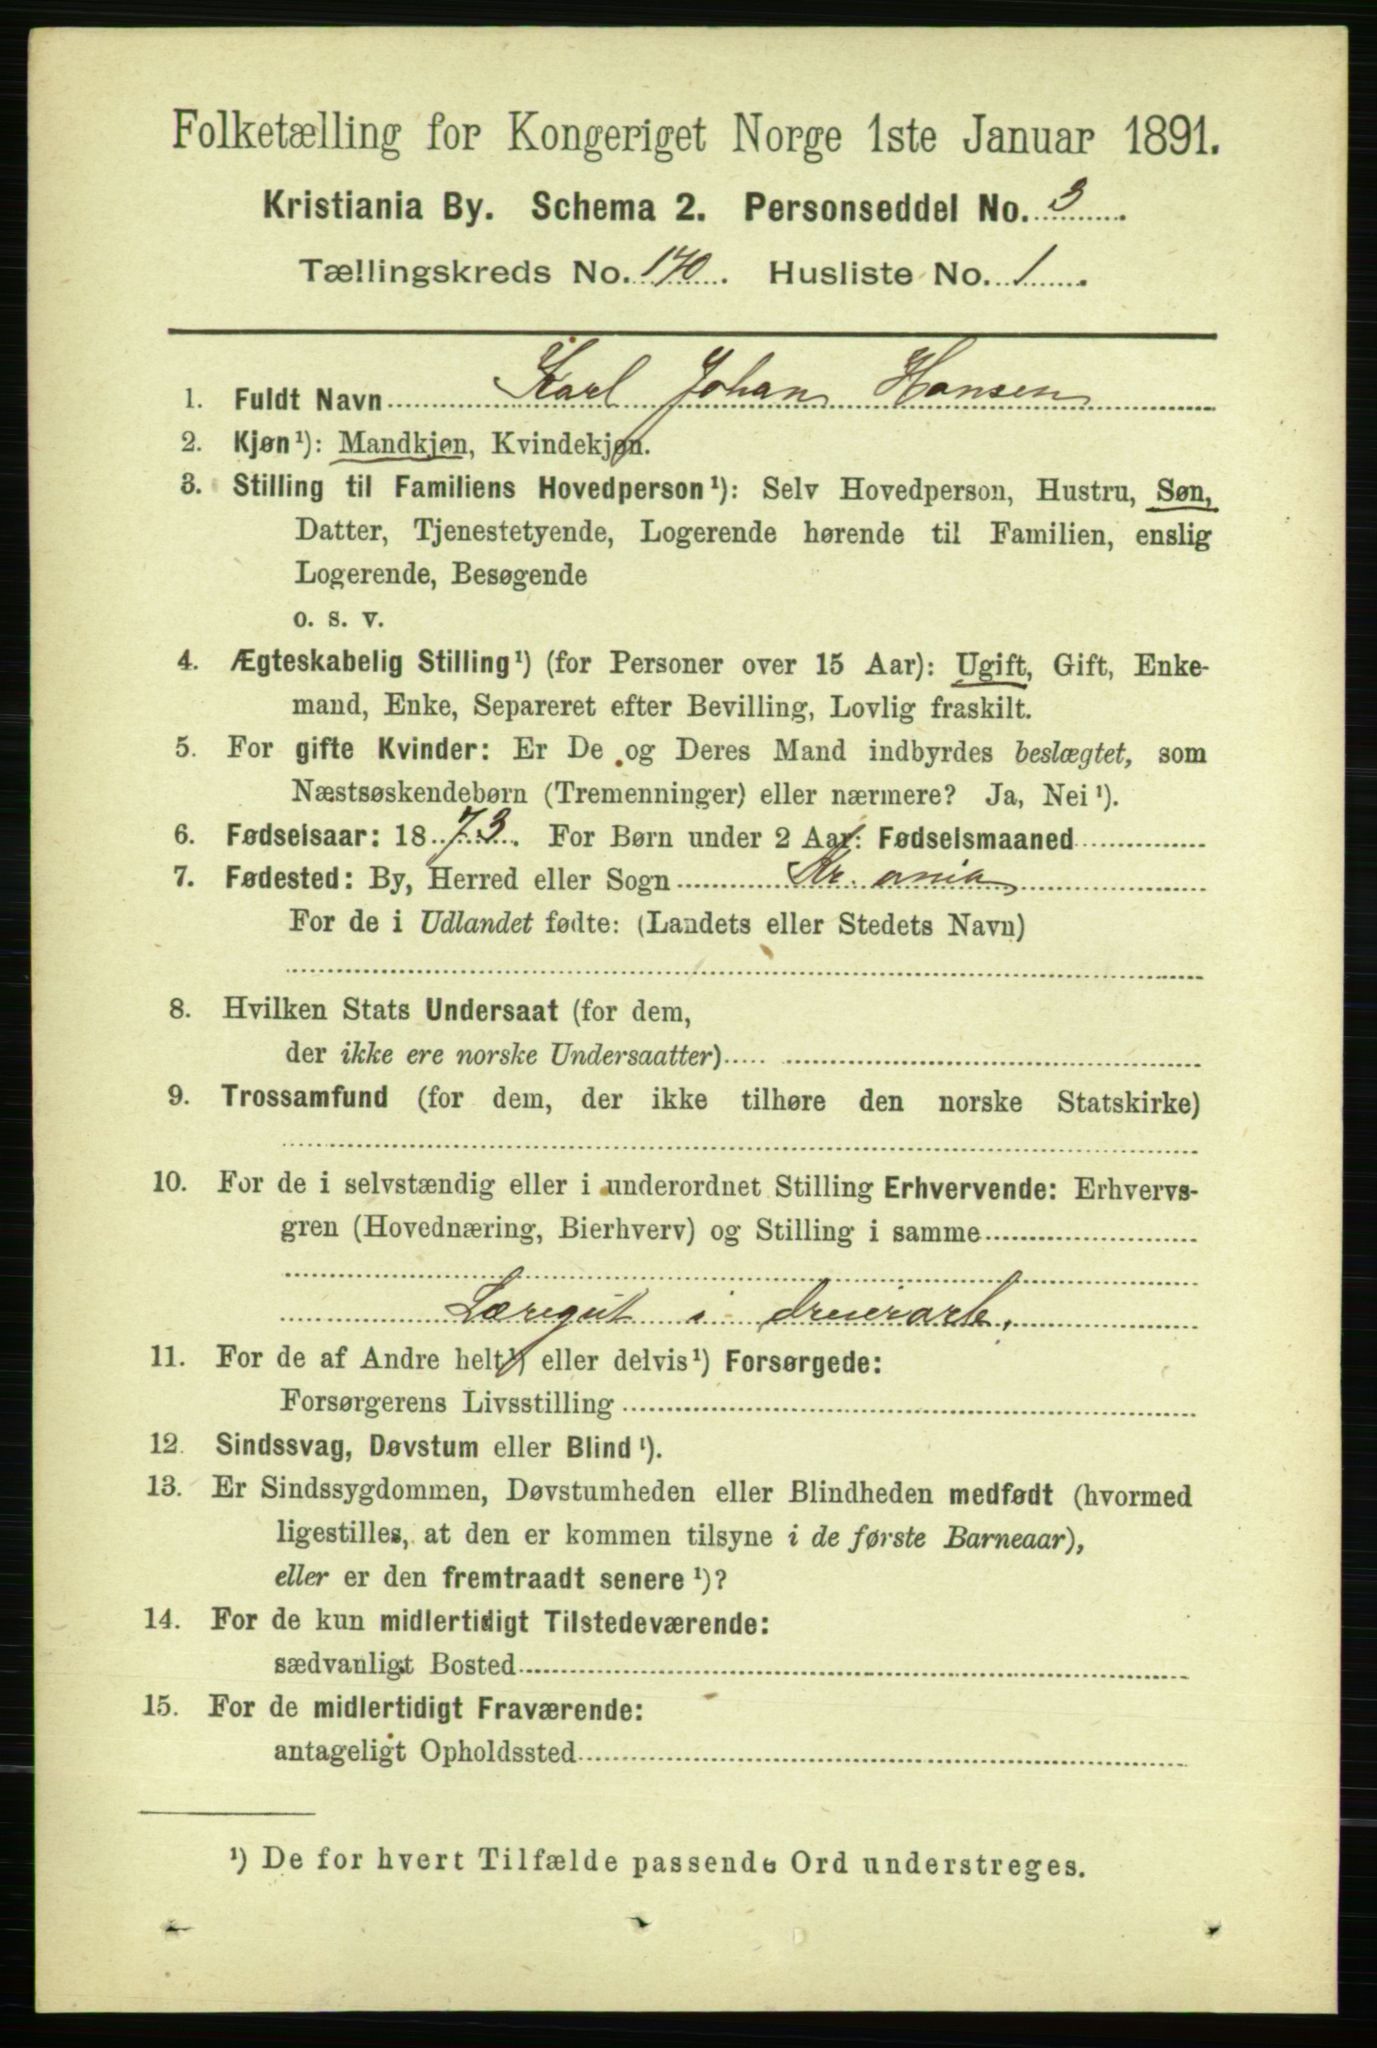 Folketælling for Kongeriget Norge 1ste Januar 1891.
Kristiania By. Schema 2. Personseddel No. 3
Tællingskreds No. 170. Husliste No. 1
1. Fuldt Navn Karl Johan Hansen
2. Kjøn¹): Mandkjøn, Kvindekjøn.
3. Stilling til Familiens Hovedperson¹): Selv Hovedperson, Hustru, Søn,
Datter, Tjenestetyende, Logerende hørende til Familien, enslig
Logerende, Besøgende
o. s. v.
4. Ægteskabelig Stilling¹) (for Personer over 15 Aar): Ugift, Gift, Enke-
mand, Enke, Separeret efter Bevilling, Lovlig fraskilt.
5. For gifte Kvinder: Er De og Deres Mand indbyrdes beslægtet, som
Næstsøskendebørn (Tremenninger) eller nærmere? Ja, Nei¹).
6. Fødselsaar: 1873. For Børn under 2 Aar: Fødselsmaaned
7. Fødested: By, Herred eller Sogn Kr. ania
For de i Udlandet fødte: (Landets eller Stedets Navn)
8. Hvilken Stats Undersaat (for dem,
der ikke ere norske Undersaatter)
9. Trossamfund (for dem, der ikke tilhøre den norske Statskirke)
10. For de i selvstændig eller i underordnet Stilling Erhvervende: Erhvervs-
gren (Hovednæring, Bierhverv) og Stilling i samme
Læregut i dreierarb.
11. For de af Andre helt¹) eller delvis¹) Forsørgede:
Forsørgerens Livsstilling
12. Sindssvag, Døvstum eller Blind¹).
13. Er Sindssygdommen, Døvstumheden eller Blindheden medfødt (hvormed
ligestilles, at den er kommen tilsyne i de første Barneaar),
eller er den fremtraadt senere¹)?
14. For de kun midlertidigt Tilstedeværende:
sædvanligt Bosted
15. For de midlertidigt Fraværende:
antageligt Opholdssted
¹) De for hvert Tilfælde passende Ord understreges.